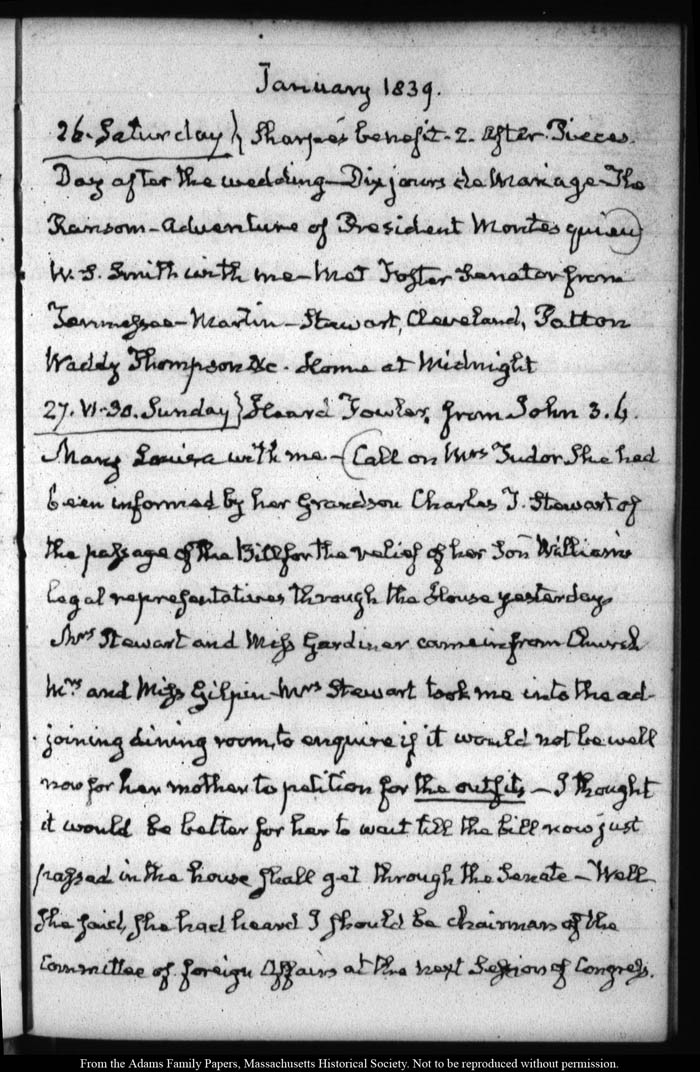 January 1839.
26. Saturday } Sharpe's benefit. 2. After Pieces.
Day after the wedding—Dix jours de Mariage—The
Ransom—Adventure of President Montesquieu)
W. S. Smith with me—Met Foster Senator from
Tennessee—Martin—Stewart, Cleveland, Patton
Waddy Thompson &c. Home at Midnight
27. VI.30. Sunday } Heard Fowler, from John 3. 4.
Mary Louisa with me—(Call on Mrs Tudor She had
been informed by her Grandson Charles T. Stewart of
the passage of the Bill for the relief of her Son William's
legal representatives through the House yesterday
Mrs Stewart and Miss Gardiner came in from Church
Mrs and Miss Gilpin—Mrs Stewart took me into the ad-
joining dining room, to enquire if it would not be well
now for her mother to petition for the outfits—I thought
it would be better for her to wait till the bill now just
passed in the house shall get through the Senate—Well
She said, She had heard I should be chairman of the
Committee of foreign Affairs at the next Session of Congress.
From the Adams Family Papers, Massachusetts Historical Society. Not to be reproduced without permission.